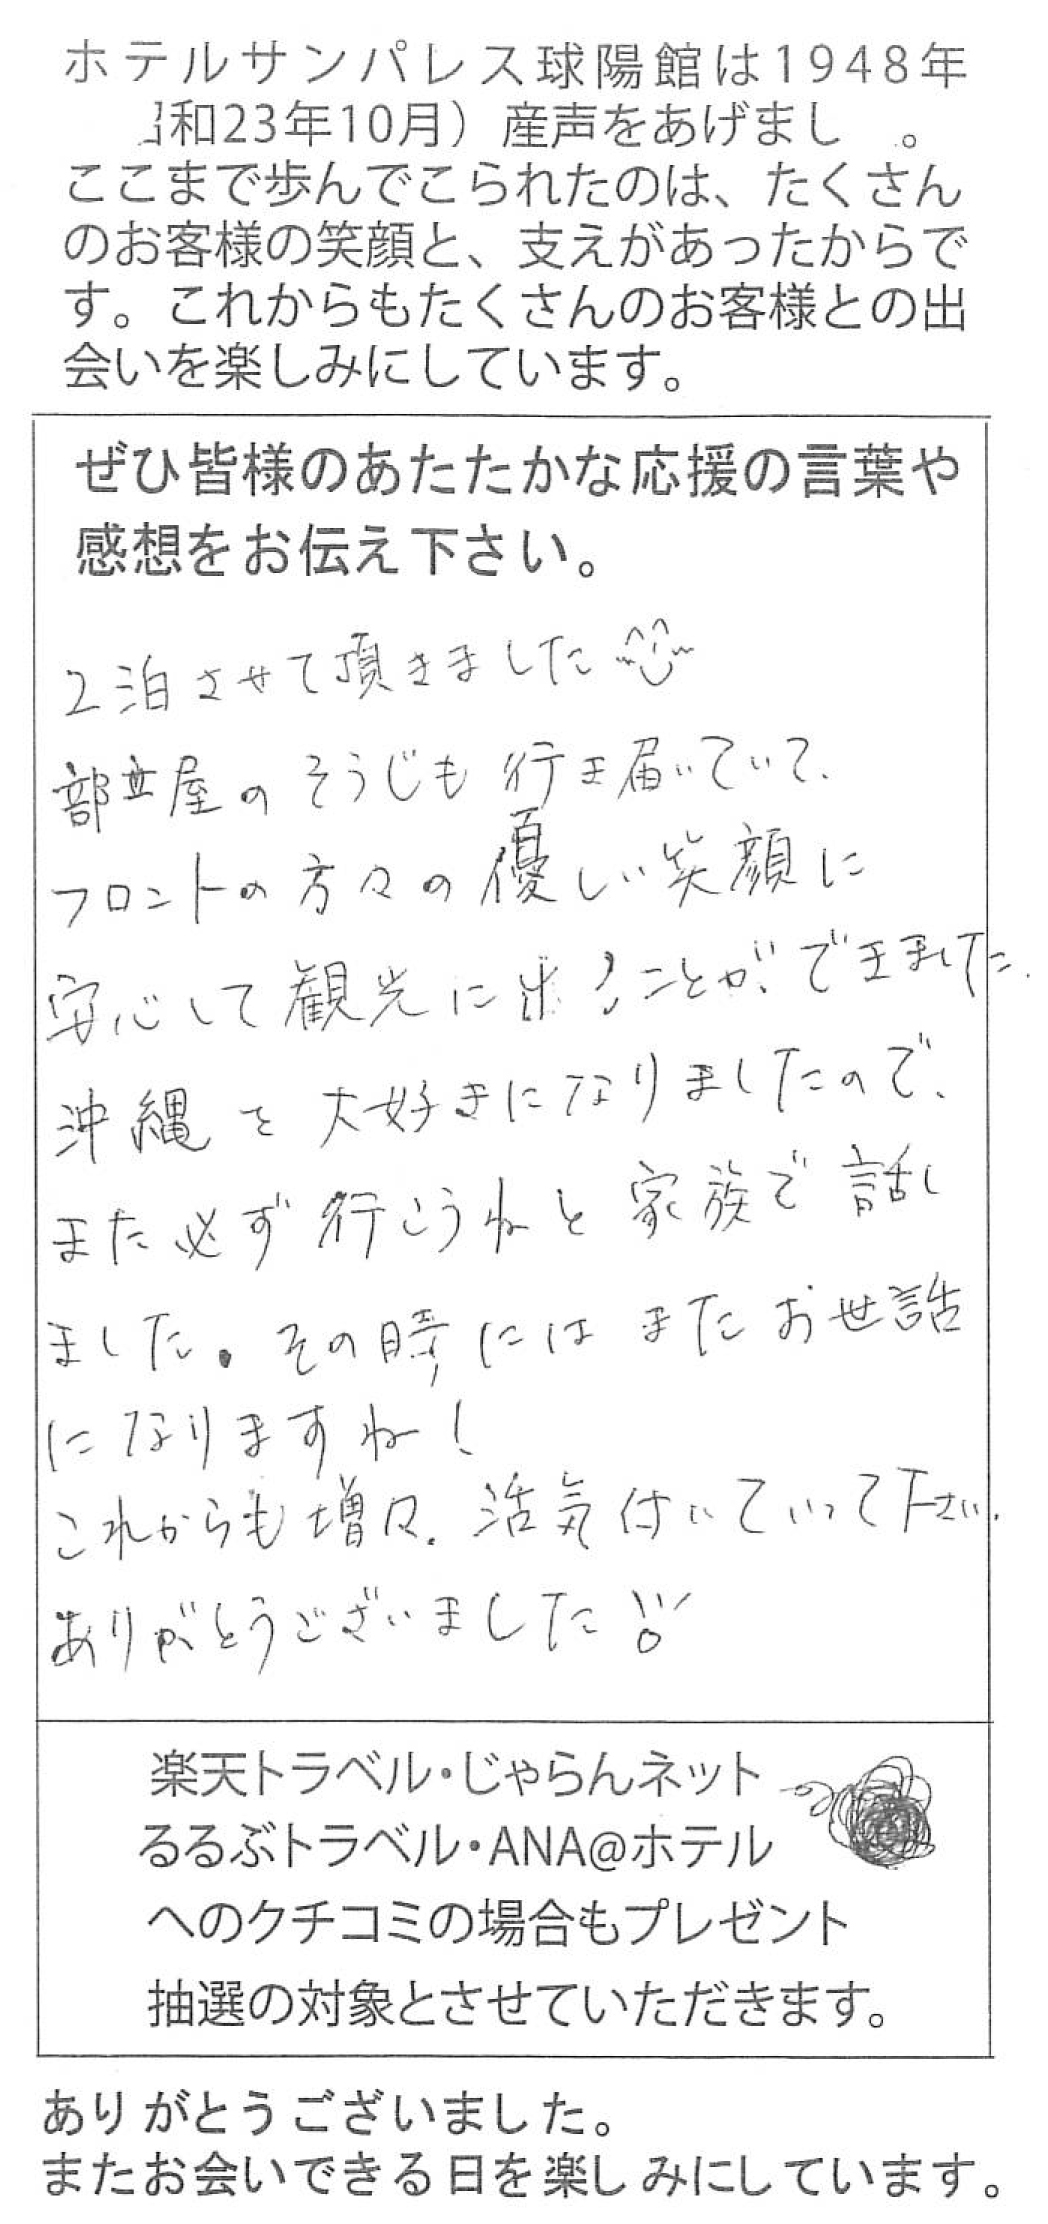 ホテルサンパレス球陽館は1948年
和23年10月）産声をあげまし 。
ここまで歩んでこられたのは、たくさん
のお客様の笑顔と、支えがあったからで
す。これからもたくさんのお客様との出
会いを楽しみにしています。
ぜひ皆様のあたたかな応援の言葉や
感想をお伝え下さい。
2泊させて頂きました
部屋のそうじも行き届いていて、
フロントの方々の優しい笑顔に
安心して観光に出ることができました。
沖縄を大好きになりましたので、
また必ず行こうねと家族で話し
ました。その時にはまたお世話
になりますね！
これからも増々、活気付いていって下さい。
ありがとうございました
楽天トラベル・じゃらんネット
るるぶトラベル・ANA@ホテル
へのクチコミの場合もプレゼント
抽選の対象とさせていただきます。
ありがとうございました。
またお会いできる日を楽しみにしています。